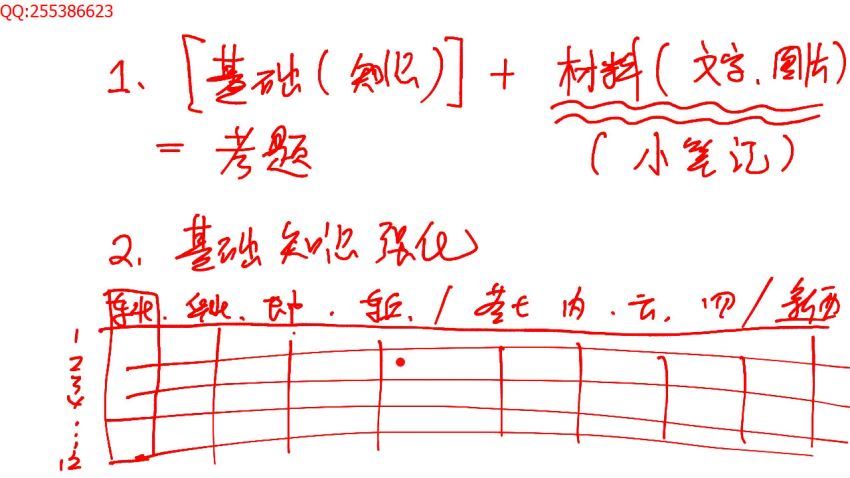 QQ:255386623
1、[基础(知识)] + 材料(文字、图片)
= 考题 (小笔记)
2、基础知识强化
东北、华北、 / 黄土 内、云、四 / 新西
1
2
3
4
12